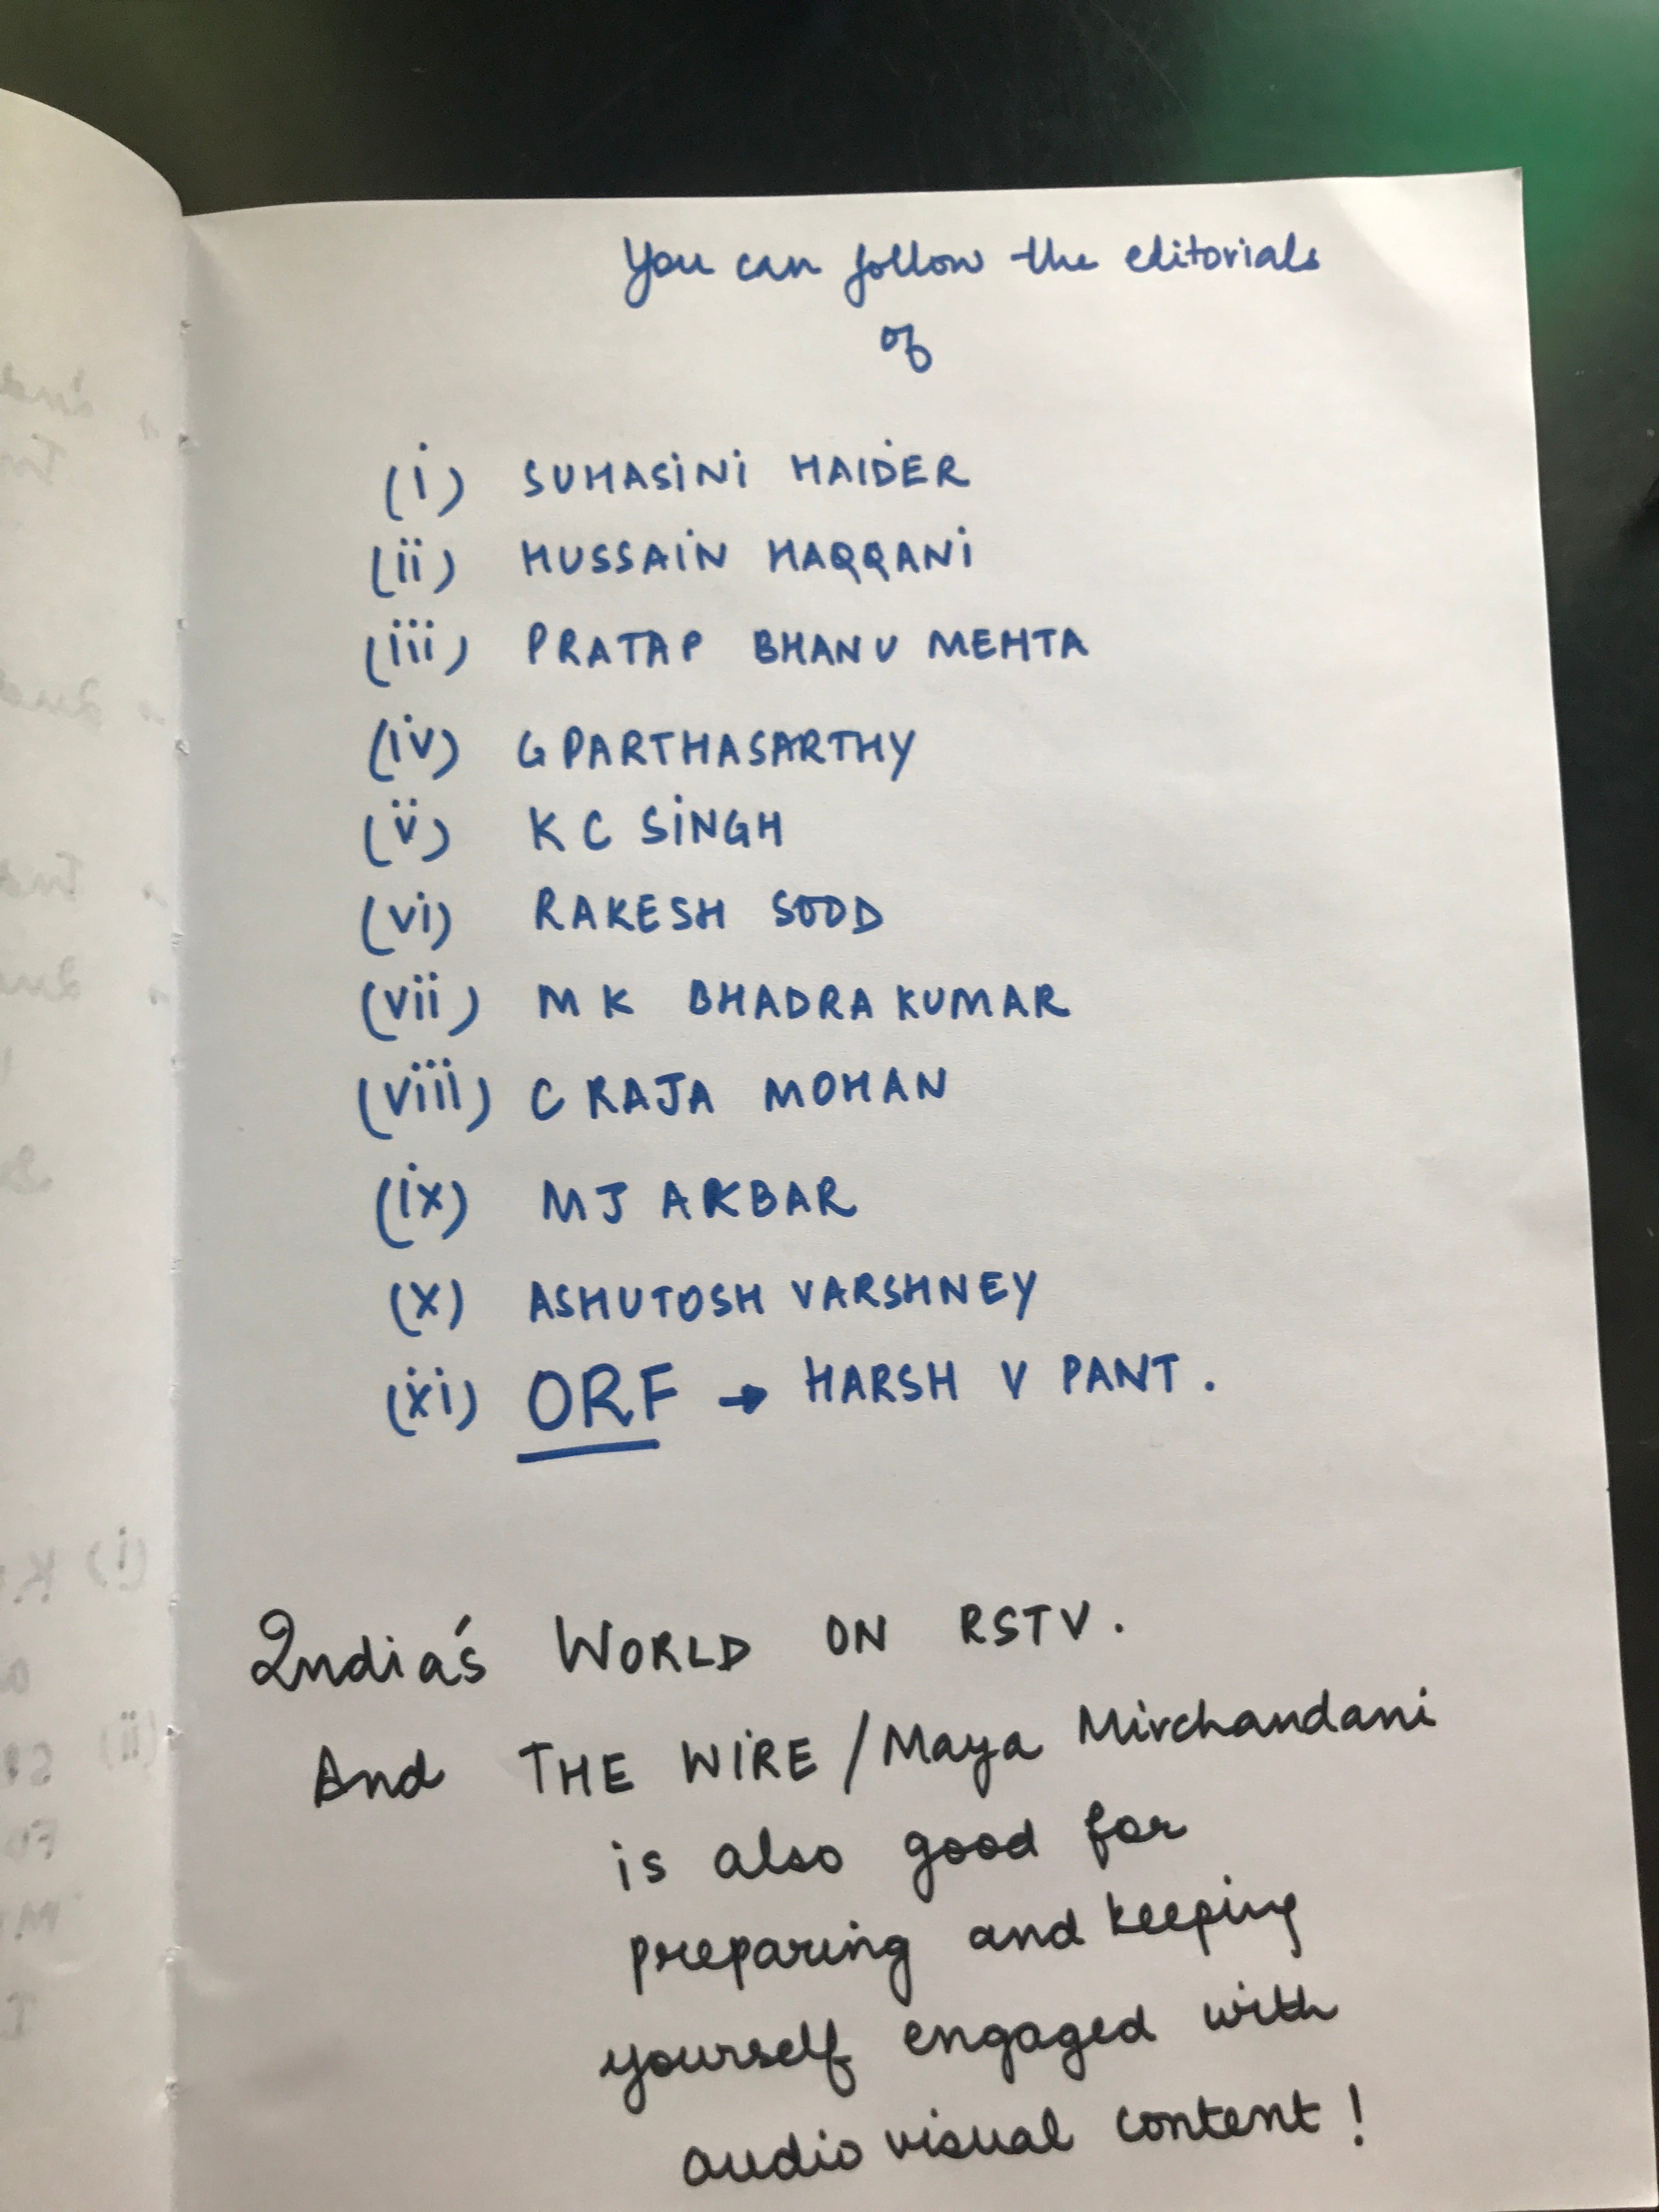 You can follow the editorials
of
(i) SUHASINI HAIDER
(ii) HUSSAIN HAQQANI
(iii) PRATAP BHANU MEHTA
(iv) G PARTHASARTHY
(v) K C SINGH
(vi) RAKESH SOOD
(vii) M K BHADRA KUMAR
(viii) C RAJA MOHAN
(ix) MJ AKBAR
(x) ASHUTOSH VARSHNEY
(xi) ORF → HARSH V PANT.
India's WORLD ON RSTV.
And THE WIRE / Maya Mirchandani
is also good for
preparing and keeping
yourself engaged with
audio visual content!